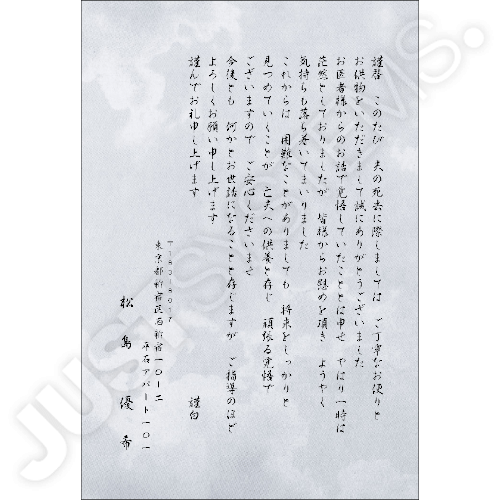 謹啓　このたび　夫の死去に際しましては　ご丁寧なお便りと
お供物をいただきまして誠にありがとうございました
お医者様からのお話で覚悟していたこととは申せ　やはり一時は
茫然としておりましたが　皆様からお慰めを頂き　ようやく
気持ちも落ち着いてまいりました
これからは　困難なことがありましても　将来をしっかりと
見つめていくことが　亡夫への供養と存じ　頑張る覚悟で
ございますので　ご安心くださいませ
今後とも　何かとお世話になることと存じますが　ご指導のほど
よろしくお願い申し上げます
謹んでお礼申し上げます
謹白
〒1６０-８０１７
東京都新宿区西新宿一〇-二
平石アパート一〇一
松島　優希
JUSTSYSTEMS.